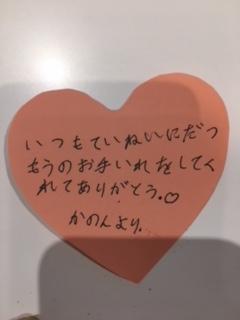 いつもていねいにだつ
もうのお手いれをしてく
れてありがとう。♡
かのんより。